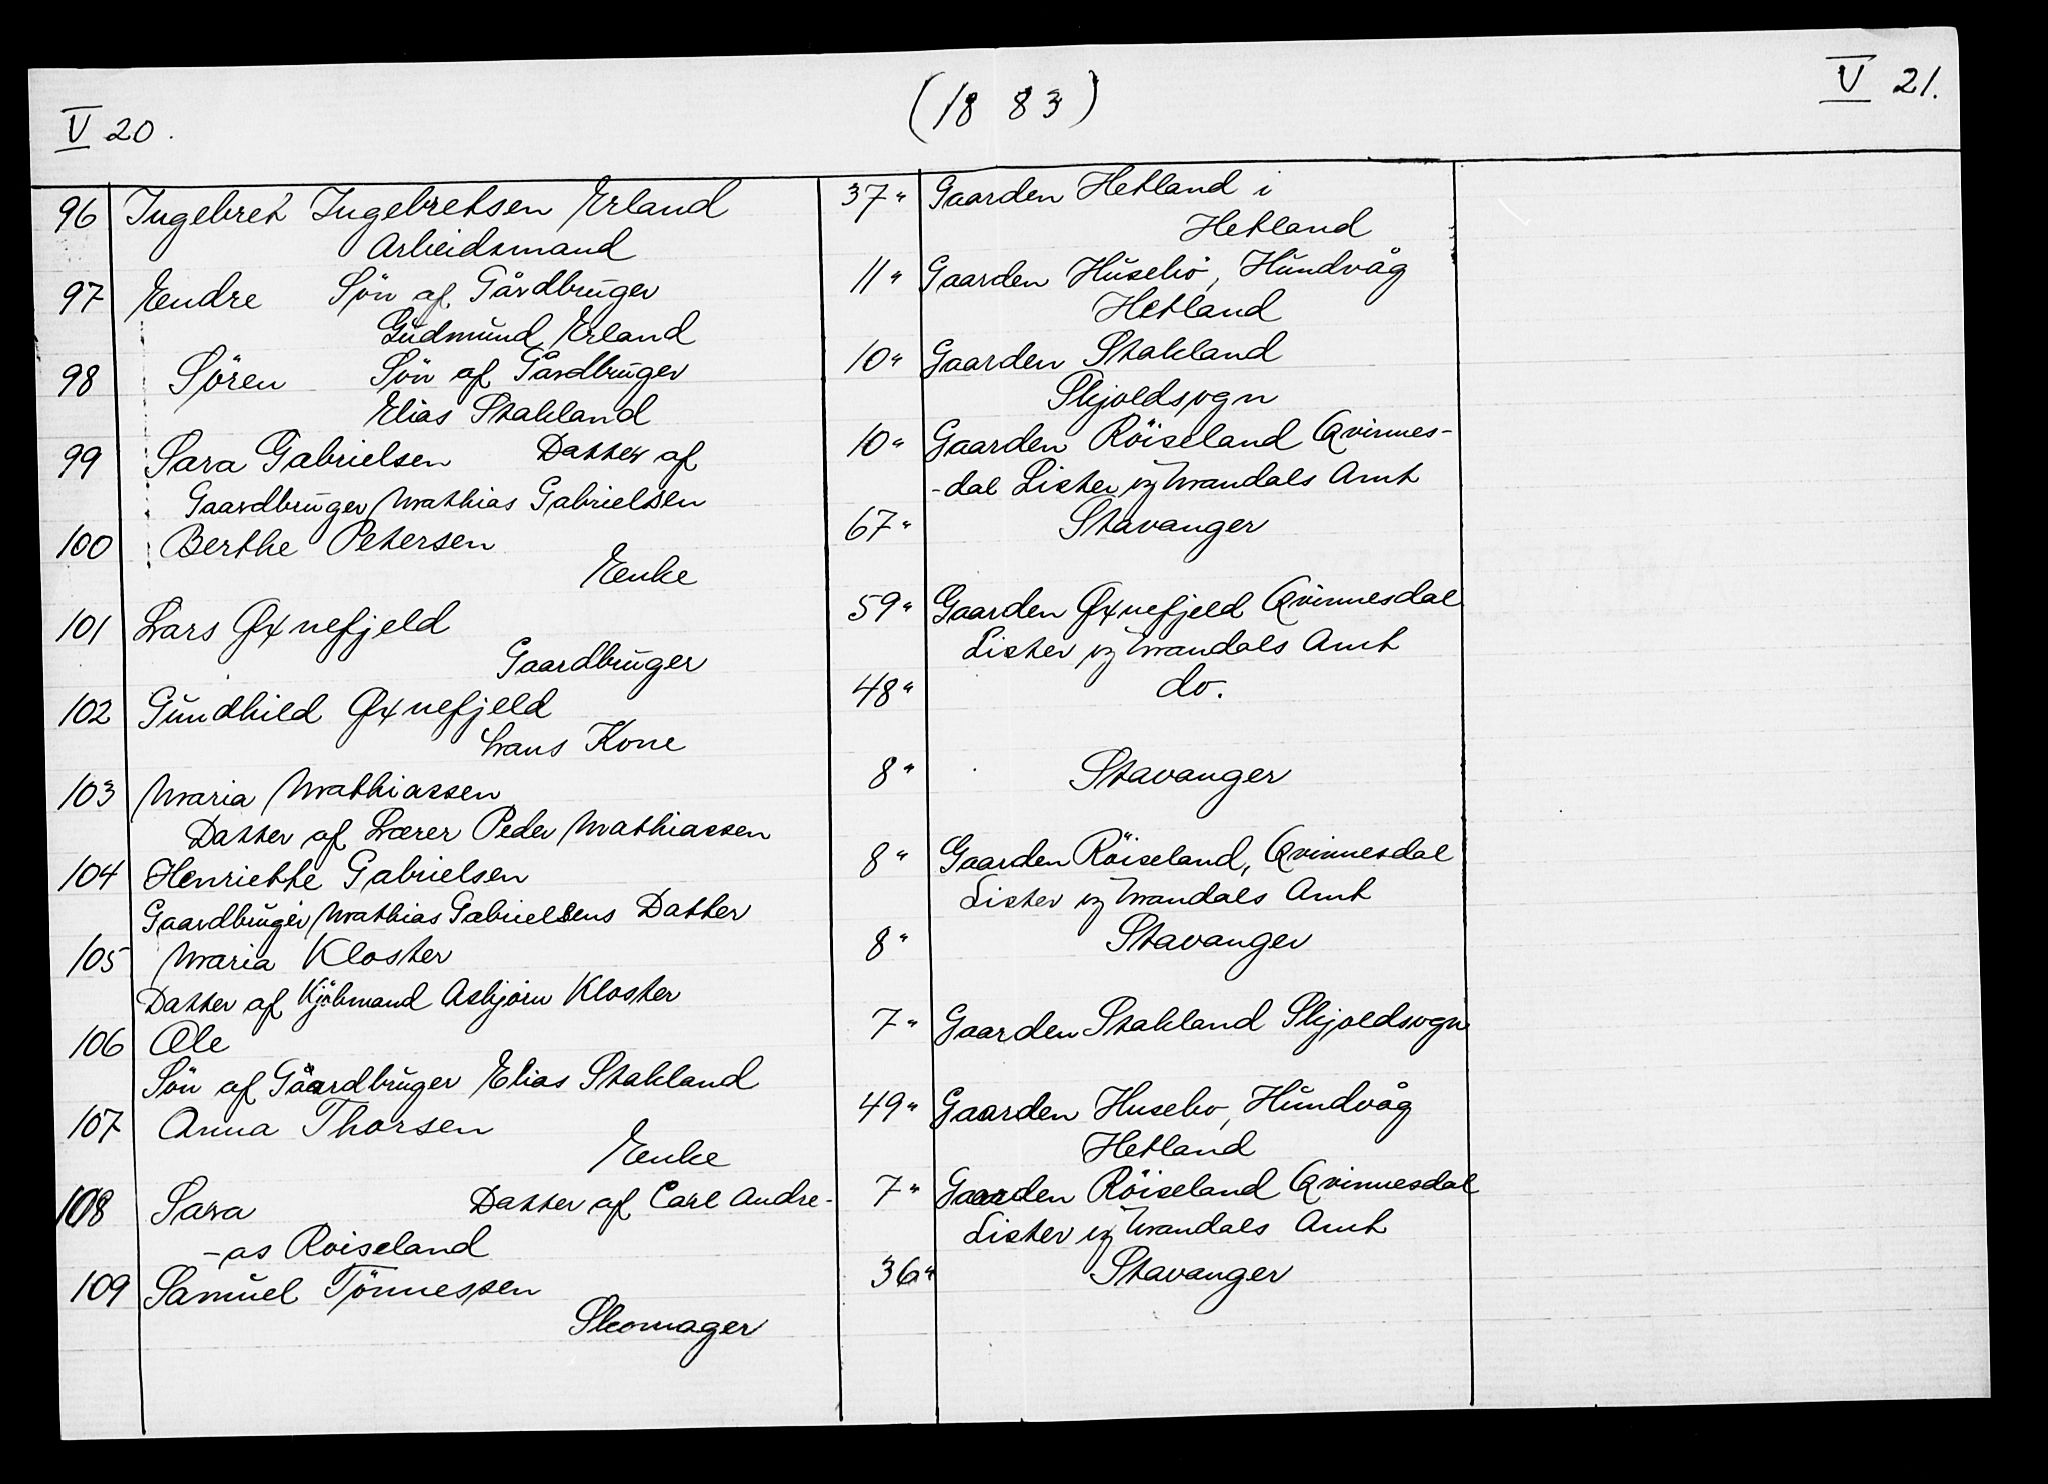 V 20.
(1883)
V 21.
96 Ingebret Ingebretsen Erland 37" Gaarden Hetland i
Arbeidsmand Hetland
97 Endre Sön af Gårdbruger 11" Gaarden Husebö, Hundvåg
Gudmund Erland Hetland
98 Sören Sön af Gårdbruger 10" Gaarden Stakland
Elias Stakland Skjoldsogn
99 Sara Gabrielsen Datter af 10" Gaarden Röiseland Qvinnes-
Gaardbruger Mathias Gabrielsen -dal Lister og Mandals Amt
100 Berthe Petersen 67" Stavanger
Enke
101 Lars Øxnefjeld 59" Gaarden Øxnefjeld Qvinnesdal
Gaardbruger Lister og Mandals Amt
102 Gundhild Øxnefjeld 48" do.
hans Kone
103 Maria Mathiassen 8" Stavanger
Datter af Lærer Peder Mathiassen
104 Henriette Gabrielsen 8" Gaarden Röiseland, Qvinnesdal
Gaardbruger Mathias Gabrielsens Datter Lister og Mandals Amt
105 Maria Kloster 8" Stavanger
Datter af Kjöbmand Asbjörn Kloster
106 Ole 7" Gaarden Stakland Skjoldsogn
Sön af Gaardbruger Elias Stakland
107 Anna Thorsen 49" Gaarden Husebo, Hundvåg
Enke Hetland
108 Sara Datter af Carl Andre- 7" Gaarden Röiseland Qvinnesdal
-as Roiseland Lister og Mandals Amt
109 Samuel Tönnessen 36" Stavanger
Skomager